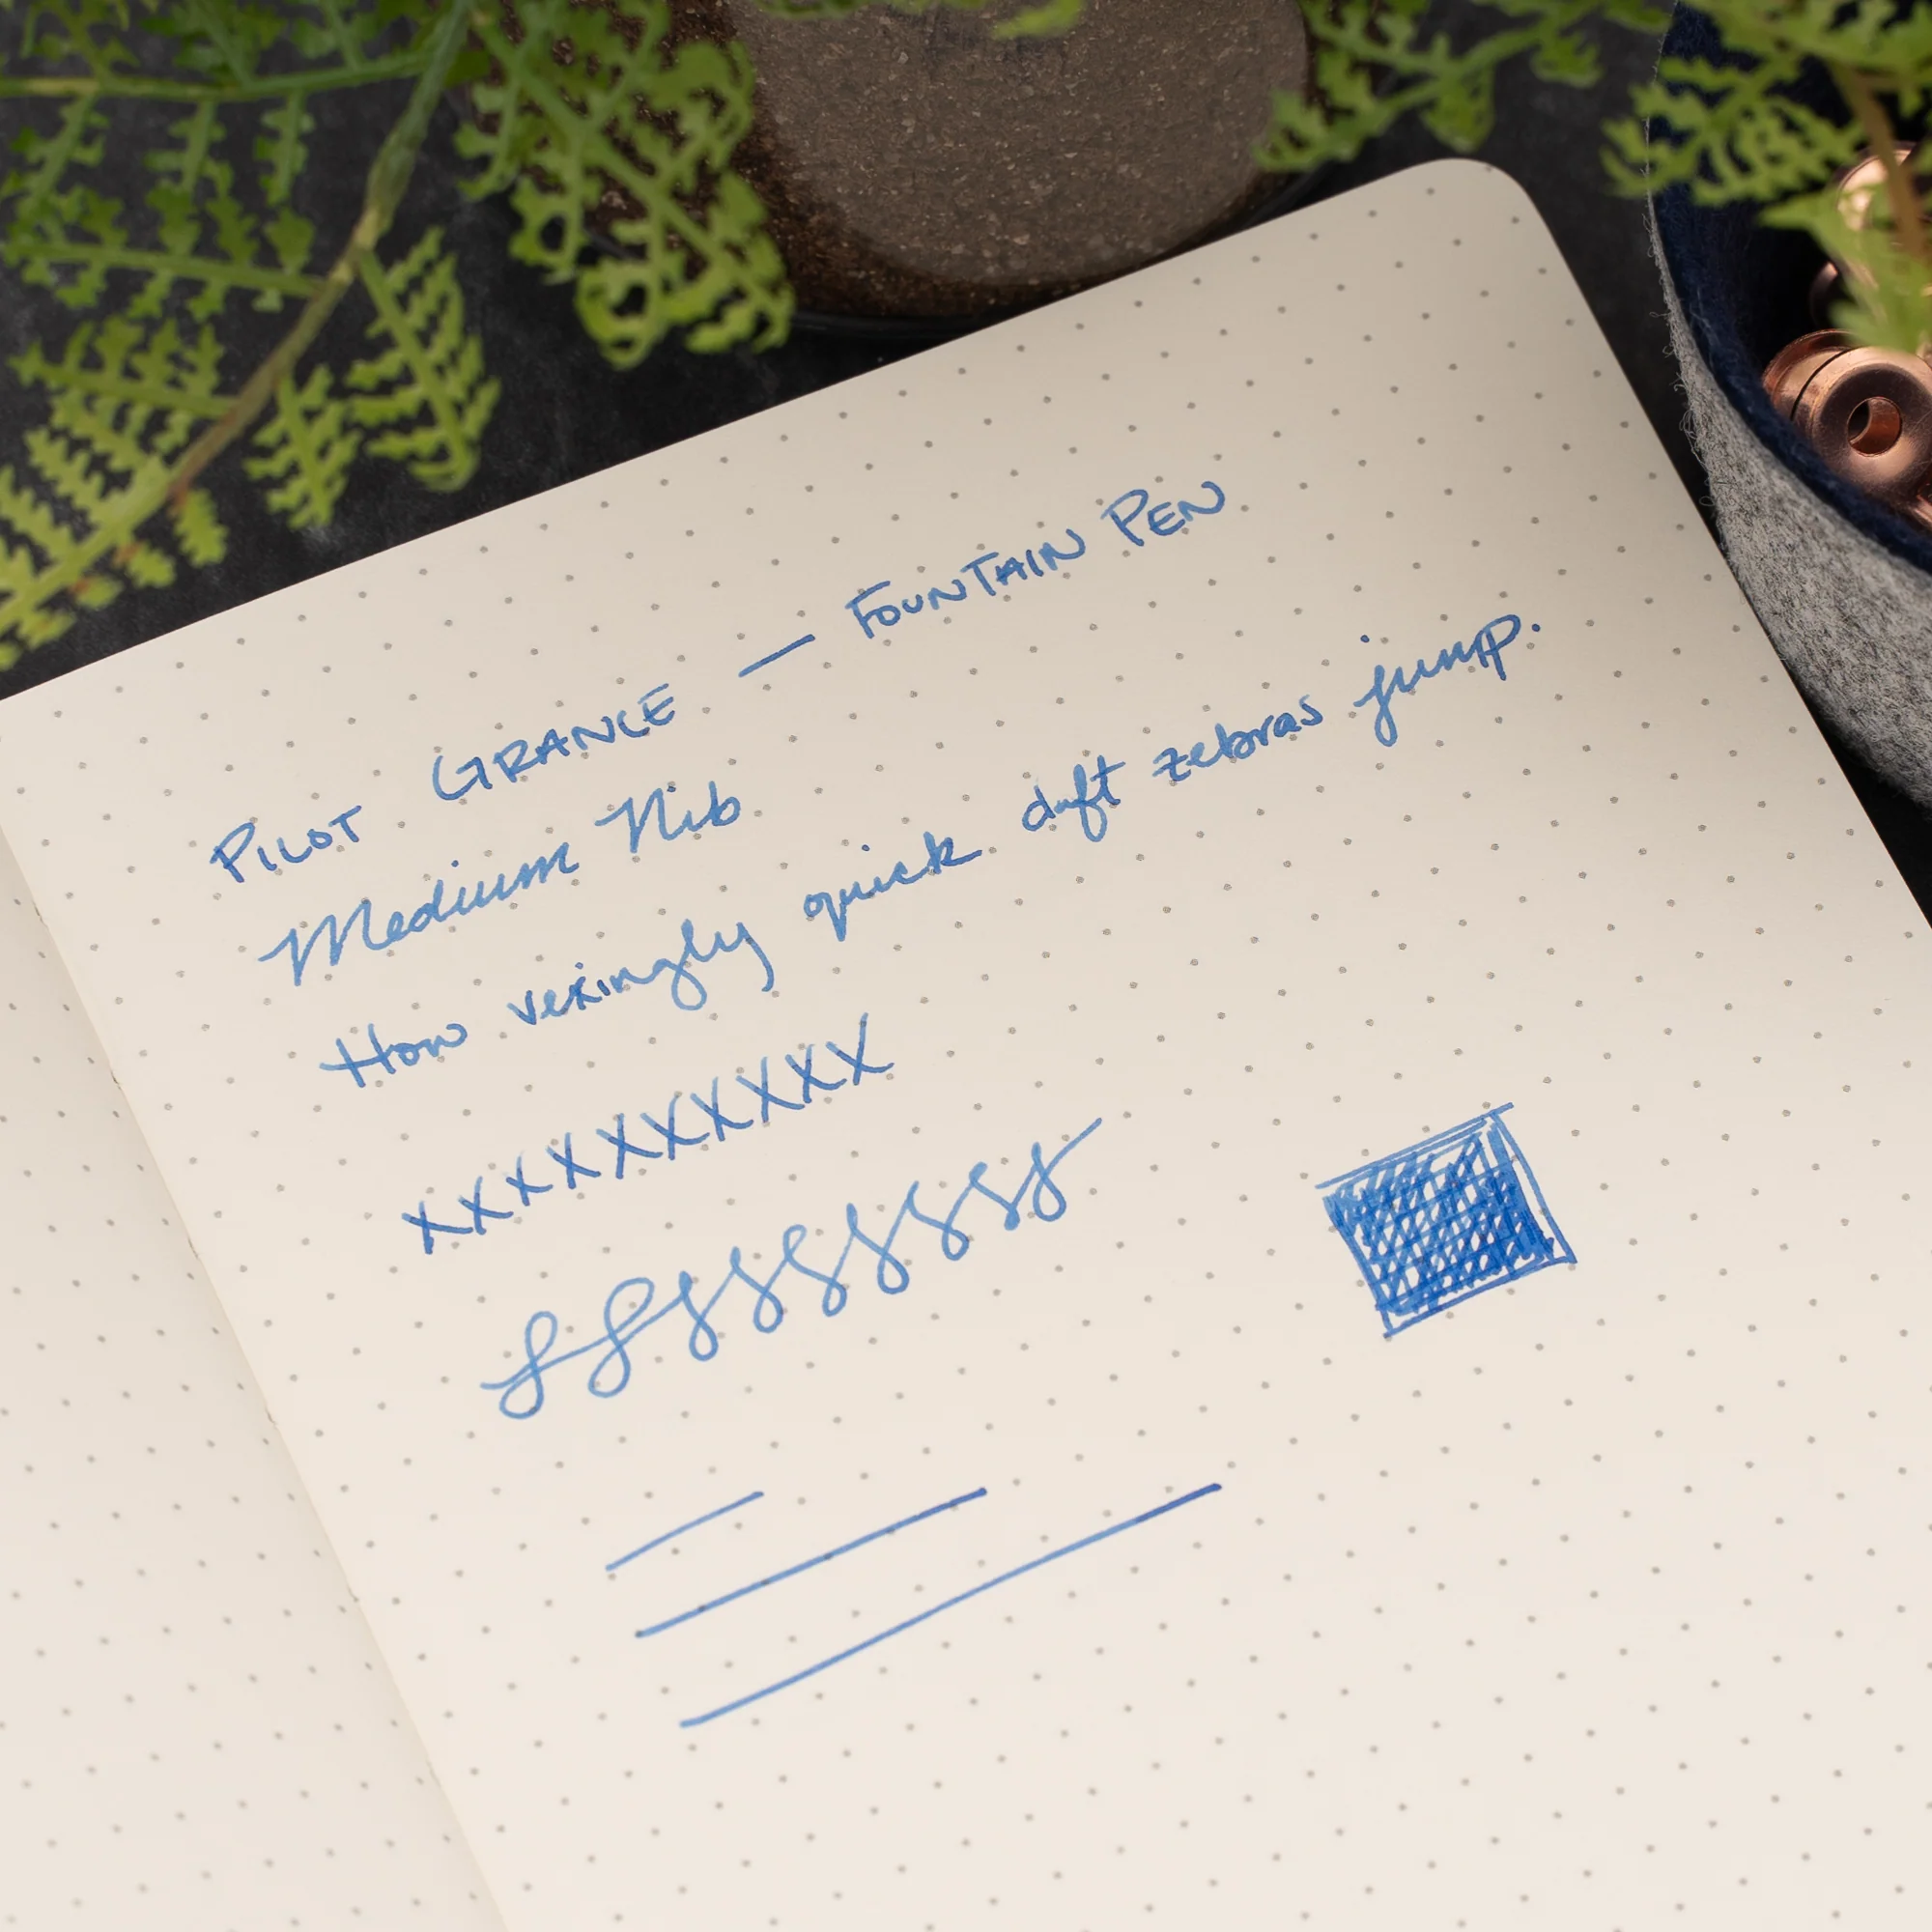 PILOT GRANCE — FOUNTAIN PEN
Medium Nib
How vexingly quick daft zebras jump.
xxxxxxxxxx